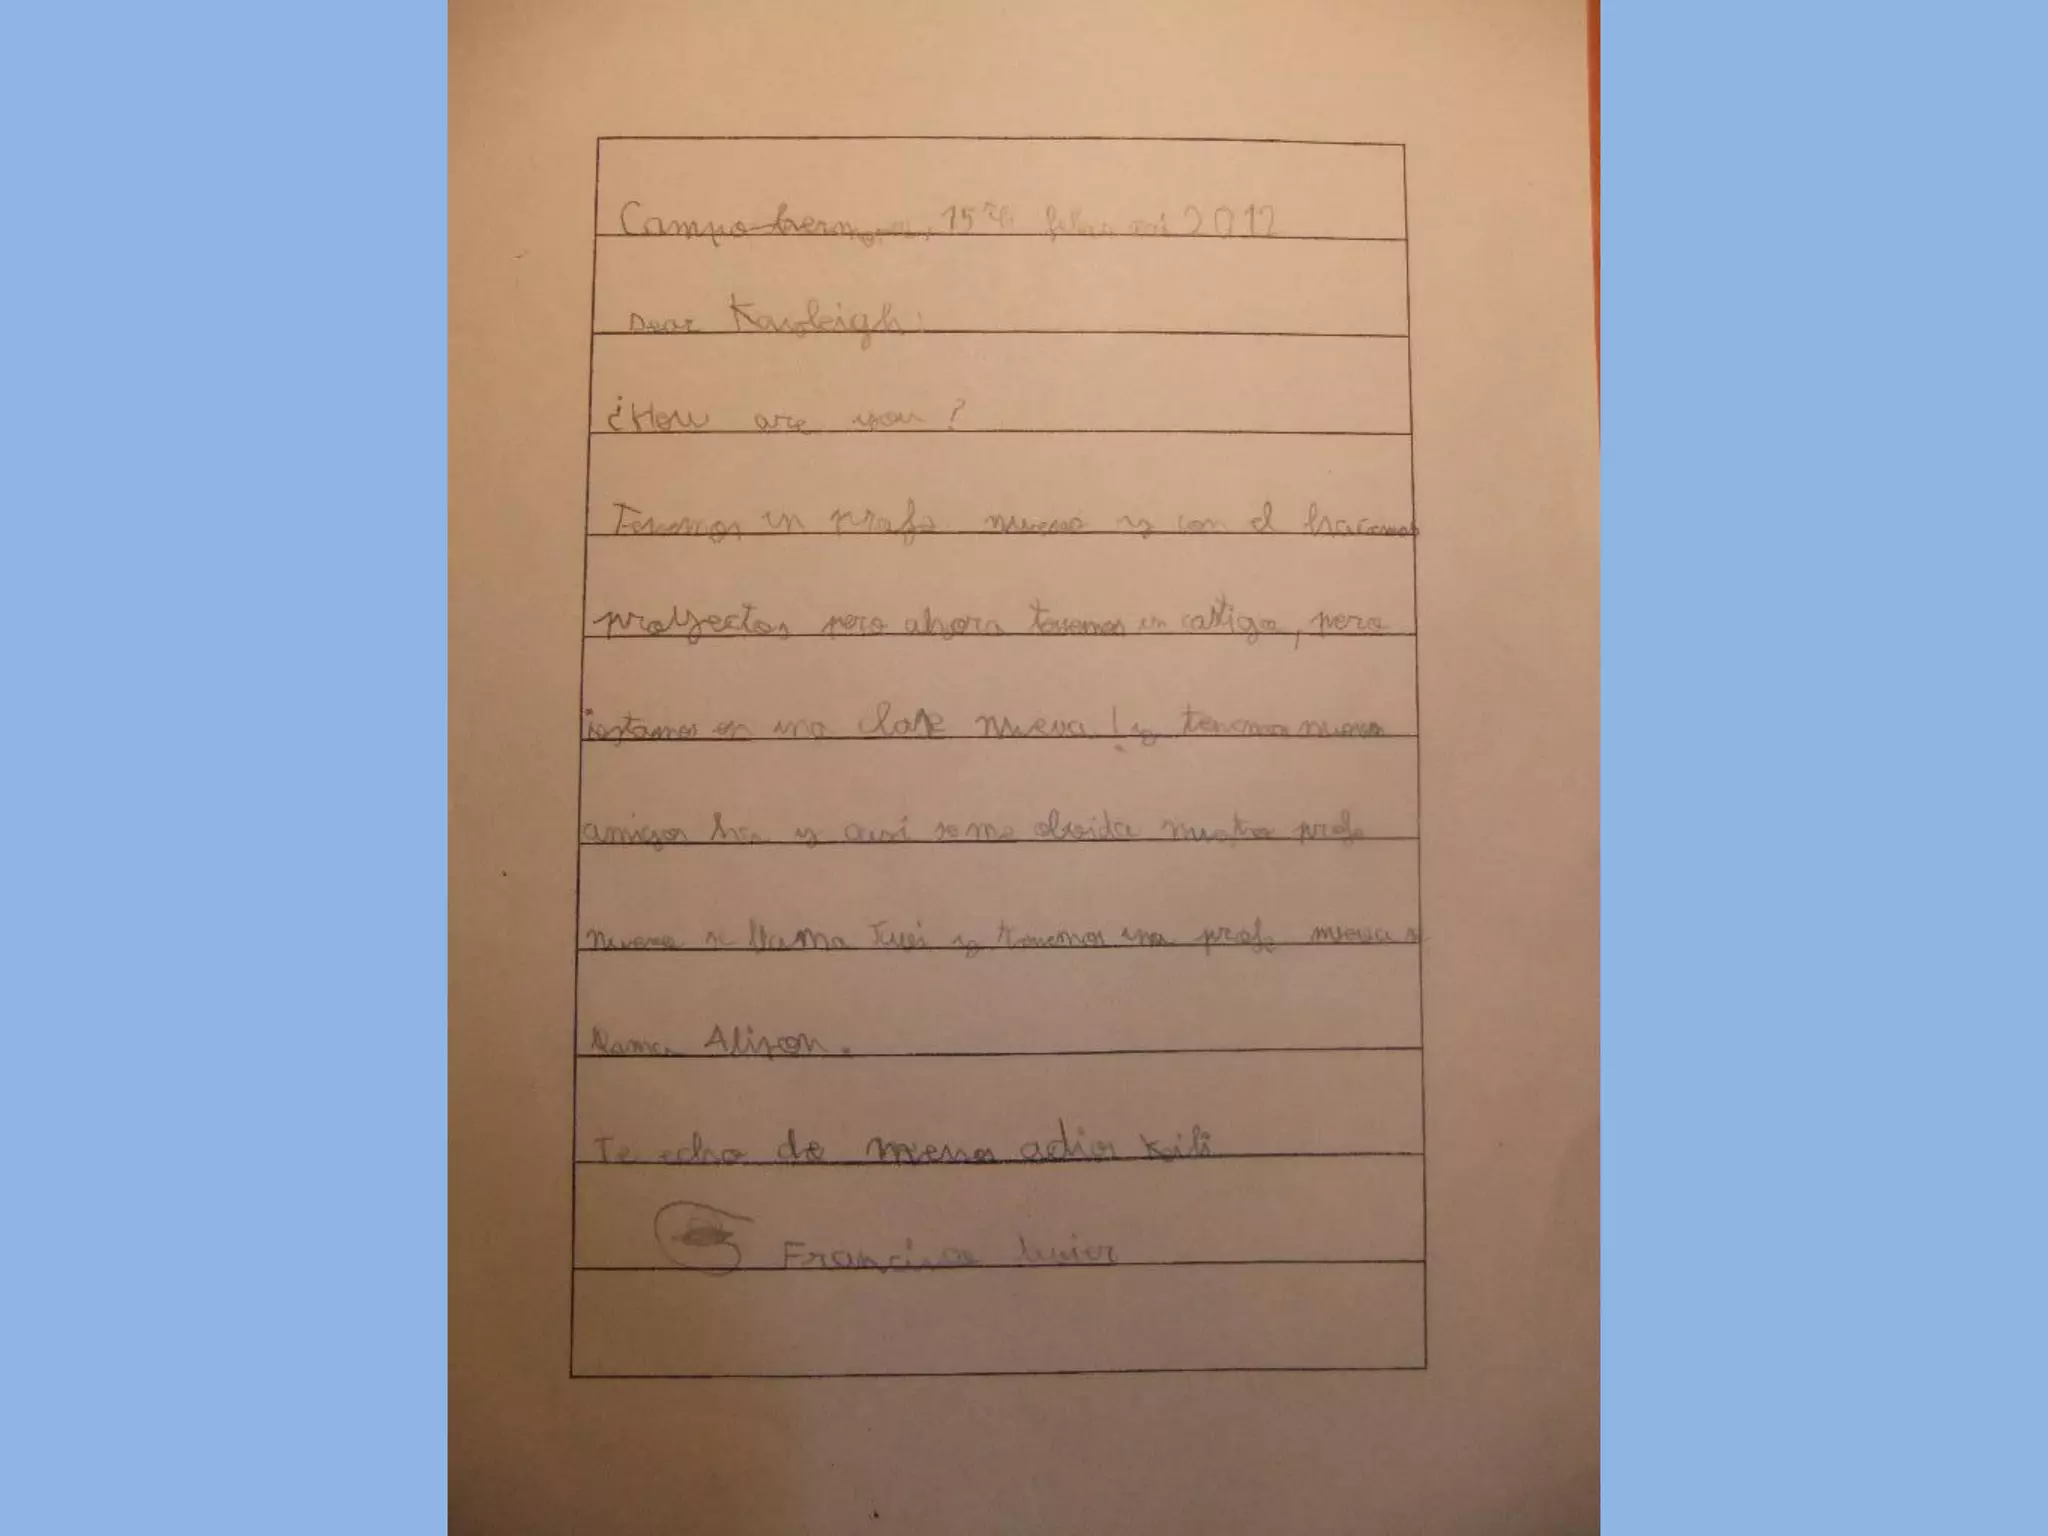 Campohermoso, 15th 2012
Dear Kayleigh:
¿How are you?
Tenemos un profe nuevo y con el hacemos
proyectos pero ahora tenemos un castigo, pero
¡estamos en una clase nueva! y tenemos nuevos
amigos ha y casi se me olvida nuestro profe
nuevo se llama y tenemos una profe nueva se
llama Alison.
Te echo de menos adios Keili
Francisco Javier